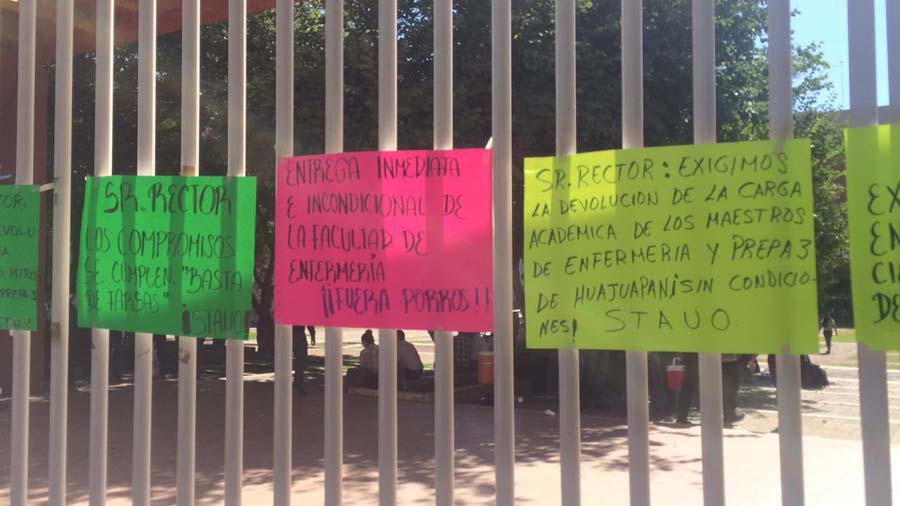 SR. RECTOR
LOS COMPROMISOS
SE CUMPLEN. "BASTA
DE FARSAS"
¡STAUO!
ENTREGA INMEDIATA
E INCONDICIONAL DE
LA FACULTAD DE
ENFERMERÍA
¡¡FUERA PORROS!!
SR. RECTOR: EXIGIMOS
LA DEVOLUCION DE LA CARGA
ACADEMICA DE LOS MAESTROS
DE ENFERMERIA Y PREPA 3
DE HUAJUAPAN ¡SIN CONDICIO-
NES! STAUO
EX
EN
CI
DE